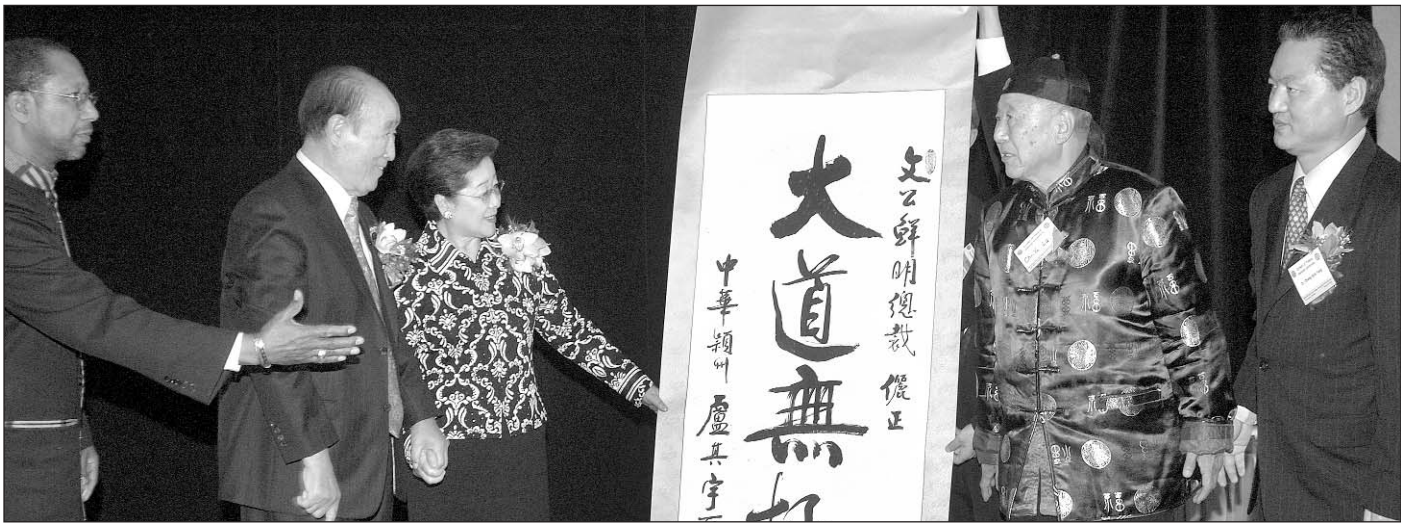 文公鮮明總裁 儷正
大道無
中華穎州 盧其宇